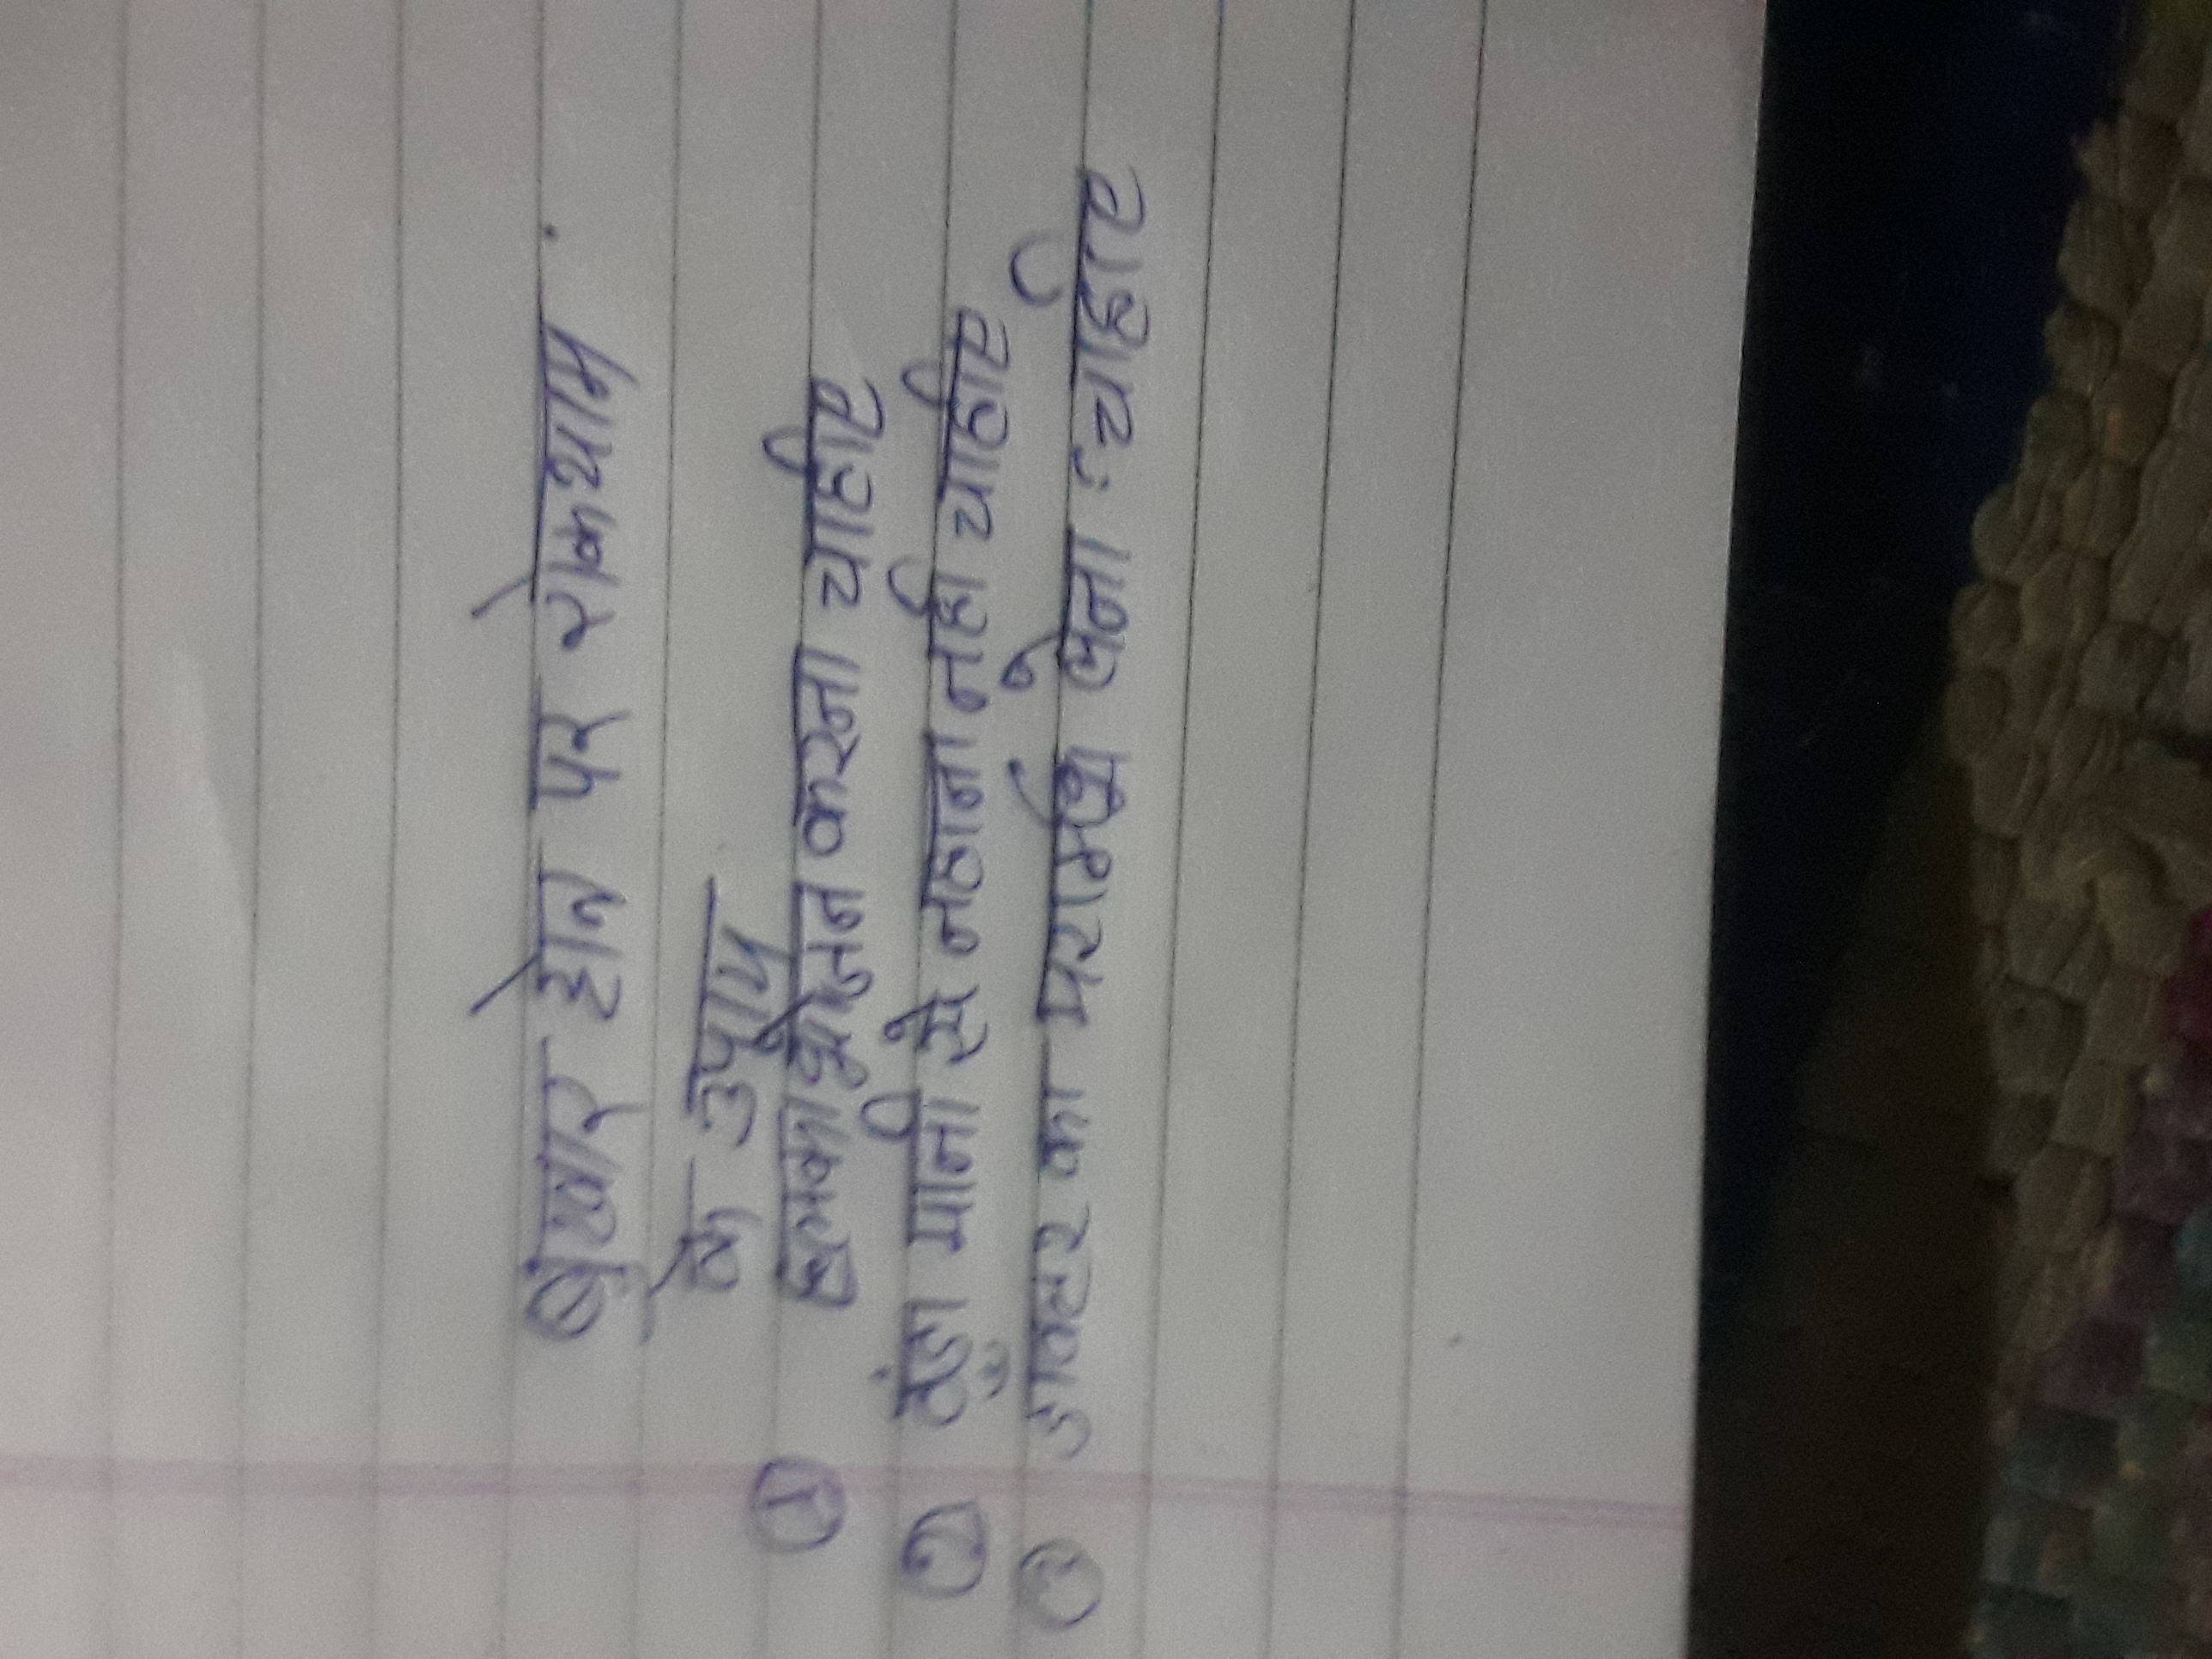 बुखार होने पर रोकथाम
के उपाय
① हलका भोजन करना चाहीए
② ठंडा पानी से नहाना नही चाहीए
③ डाक्टर का परामर्श लेना चाहीए